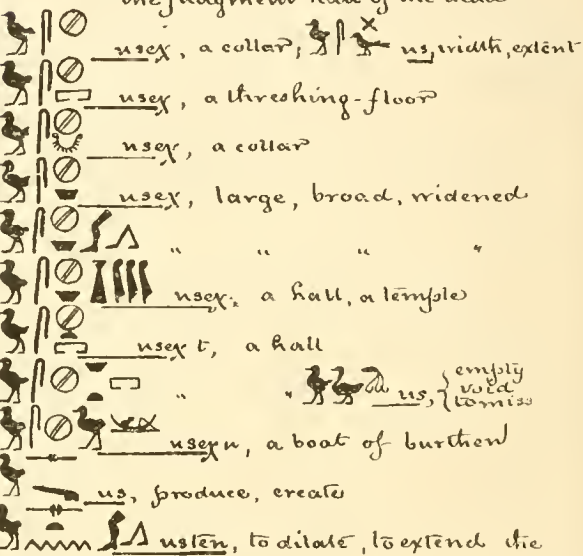 the judgment hall of the dead
usex, a collar; us, width, extent
usex, a threshing-floor
usex, a collar
usex, large, broad, widened
" " " "
usex, a hall, a temple
usex t, a hall
" " us, { empty void to miss
usexu, a boat of burthen
us, produce, create
usten, to dilate, to extend the